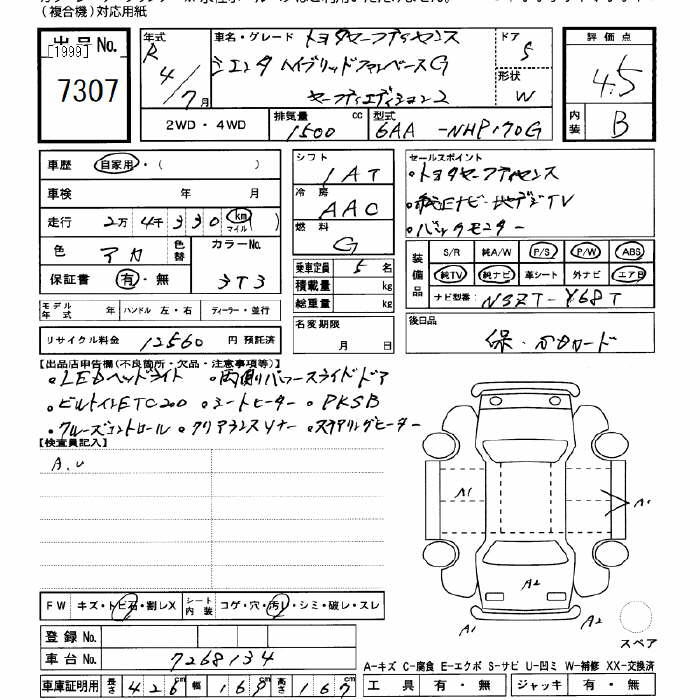 (複合機)対応用紙
出品No.
[1999]
7307
年式
R 4/7月
車名・グレード トヨタセーフティセンス
シエンタ ハイブリッドファンベースG
セーフティエディション2
ドア 5
形状 W
評価点
4.5
内装 B
2WD・4WD
排気量 1500 cc
型式 6AA-NHP170G
車歴 自家用・( )
車検 年 月
走行 2万4千330 km マイル ( )
色 アカ 色替 カラーNo. 3T3
保証書 有・無
モデル年式 年 ハンドル 左・右 ディーラー・並行
リサイクル料金 12560 円 預託済
シフト IAT
冷房 AAC
燃料 G
乗車定員 5 名
積載量 kg
総重量 kg
名変期限
月 日
セールスポイント
・トヨタセーフティセンス
・純正ナビ・地デジTV
・バックモニター
装備品
S/R 純A/W P/S P/W ABS
純TV 純ナビ 革シート 外ナビ エアB
ナビ型番: NSZT-Y68T
後日品
保・カカード
【出品店申告欄(不良箇所・欠品・注意事項等)】
・LEDヘッドライト ・両側パワースライドドア
・ビルトインETC2.0 ・シートヒーター ・PKSB
・クルーズコントロール ・クリアランスソナー ・ステアリングヒーター
【検査員記入】
A.U
A1
A1
A2
A1
A2
スペア
FW キズ・トビ石・割レX シート内装 コゲ・穴・汚レ・シミ・破レ・スレ
登録No.
車台No. 7268134
車庫証明用 長さ 426cm 幅 169cm 高さ 167cm
A-キズ C-腐食 E-エクボ S-サビ U-凹ミ W-補修 XX-交換済
工具 有・無 ジャッキ 有・無